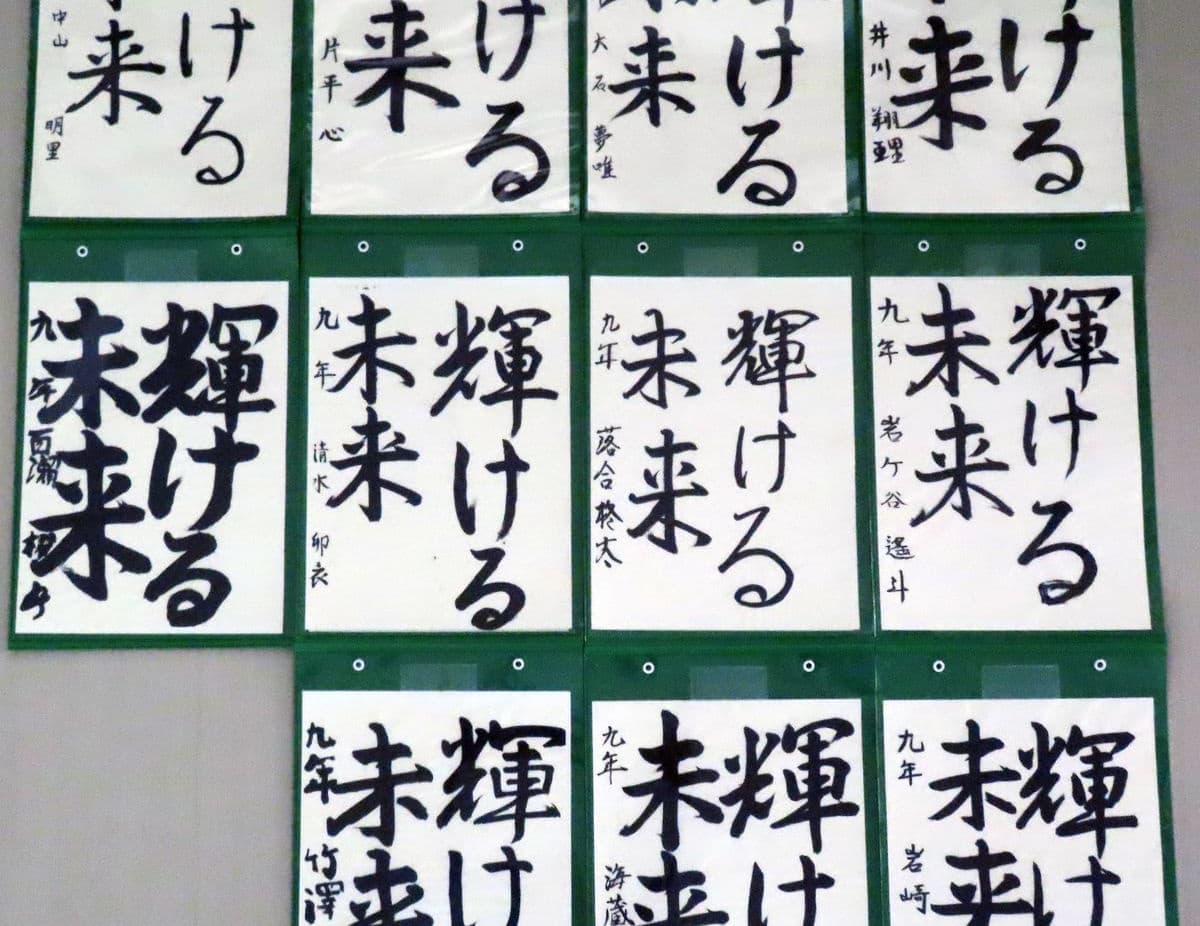 ける
来
中山 明里
ける
来
片平 心
ける
来
大石 夢唯
ける
来
井川 翔
輝ける
未来
九年 百瀬
輝ける
未来
九年 清水 卯衣
輝ける
未来
九年 落合柊太
輝ける
未来
九年 岩ケ谷 遙斗
輝け
未来
九年 竹澤
輝け
未来
九年 海蔵
輝け
未来
九年 岩崎